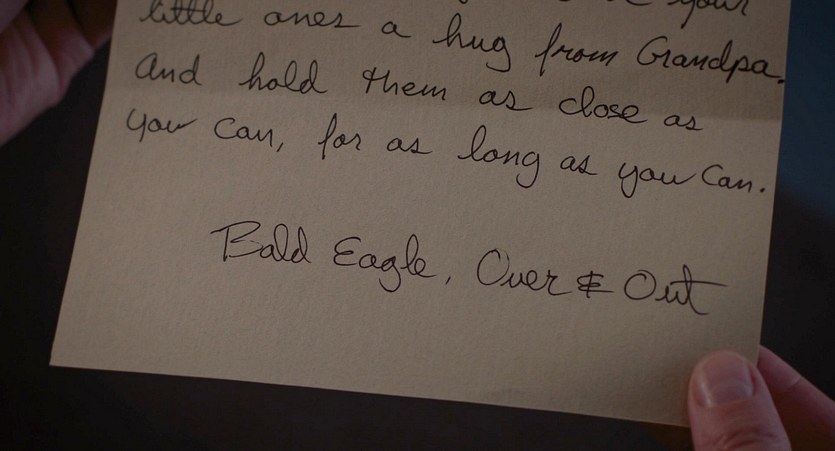 your
little ones a hug from Grandpa.
And hold them as close as
you can, for as long as you can.
Bald Eagle, Over & Out